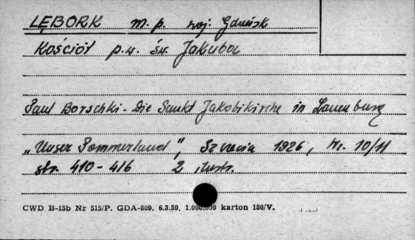 LĘBORK m. p. woj. Gdańsk
Kościół p.w. św. Jakuba
Paul Borschki - Die Sankt Jakobikirche in Lauenburg
„Unser Pommerland", Szczecin 1926, Nr. 10/11
str. 410-416 2 ilustr.
CWD B-15b Nr 515/P. GDA-809. 6.3.59. 1.000.000 karton 180/V.